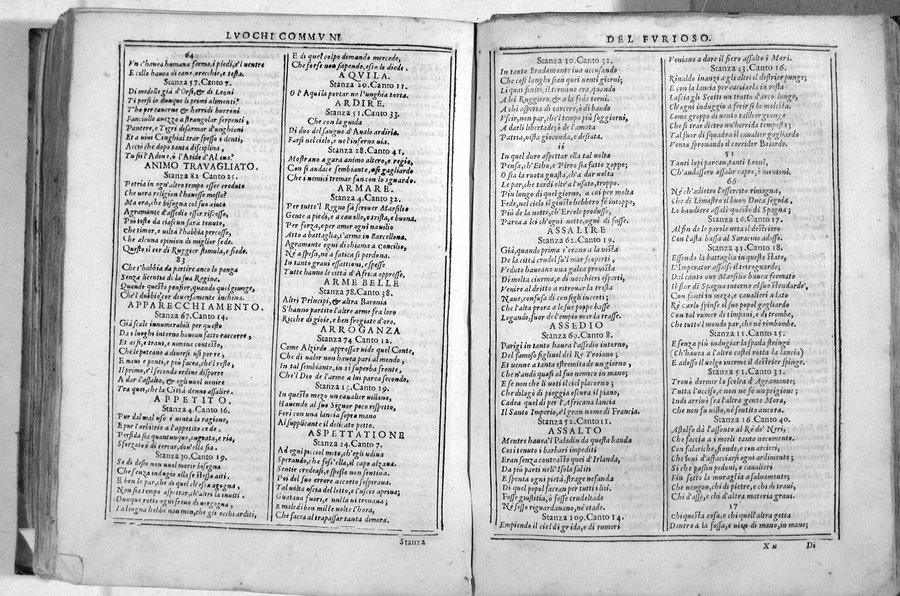 LVOCHI COMMVNI
64
Vn c'hauea humana forma, i piedi, e'l uentre
E collo hauea di cane, orecchie, e testa.
Stanza 57. Canto 7.
Di medolle già d'Orsi, & di Leoni
Ti porsi io dunque li primi alimenti?
T'ho per cauerne & horridi burroni
Fanciullo auezzo a strangolar serpenti,
Pantere, e Tigri disarmar d'unghioni
Et a uiui Cinghial trar spesso i denti,
Acciò che dopo tanta disciplina,
Tu sii l'Adone, ò l'Atide d'Alcina?
ANIMO TRAVAGLIATO.
Stanza 82 Canto 25.
Patria in ogn'altro tempo esser creduto
Che uera religion l'hauesse mosso?
Ma ora, che bisogna col suo aiuto
Agramante d'assedio esser riscosso,
Più tosto da ciascun sarà tenuto,
Che timor, e uiltà l'habbia percosso,
Che alcuna opinion di miglior fede.
Questo il cor di Ruggier stimula, e fiede.
83
Che t'habbia da partire anco lo punga
Senza licentia de la sua Regina.
Quando questo pensier, quando quel giunge,
Che'l dubbio cor diuersamente inchina.
APPARECCHIAMENTO.
Stanza 67. Canto 14.
Già scale innumerabili per questo
Da i luoghi intorno hauean fatto raccorre,
Et assi, e traui, e uimine contesto,
Che le poteano a diuersi usi porre,
E naui, e ponti, e più facea, che'l resto,
Il primo, e'l secondo ordine disporre
A dar l'assalto, & egli uuol uenire
Tra quei, che la Città denno assalire.
APPETITO.
Stanza 4. Canto 16.
Pur dal mal uso è uinta la ragione,
E pur l'arbitrio a l'appetito cede.
Perfida sia quantunque, ingrata, e ria,
Sforzato è di cercar, dou'ella sia.
Stanza 30. Canto 19.
Se di desio non uuol morir bisogna
Che senza indugio ella se stessa aiti.
E ben le par, che di quel ch'essa agogna,
Non sia tempo aspettar, ch'altri la inuiti.
Dunque rotto ogni freno di uergogna,
La lingua hebbe non men, che gli occhi arditi,
E di quel colpo dimando mercede,
Che forse non sapendo, esso le diede.
AQVILA.
Stanza 20. Canto 11.
O l'Aquila portar ne l'unghia torta.
ARDIRE.
Stanza 51. Canto 33.
Che con la guida
Di duo del sangue d'Aualo ardiria.
Farsi nel cielo, e ne l'inferno uia.
Stanza 28. Canto 41.
Mostrano a gara animo altero, e regio,
Con sì audace sembiante, e sì gagliardo
Che i nemici tremar fan con lo sguardo.
ARMARE.
Stanza 4. Canto 32.
Per tutto'l Regno fà scriuer Marsilio
Gente a piedi, e a cauallo, e trista, e buona.
Per forza, e per amor ogni nauilio
Atto a battaglia, s'arma in Barcellona.
Agramante ogni dì chiama a Concilio,
Ne a spesa, nè a fatica si perdona.
In tanto graui essattioni, e spesse
Tutte hanno le città d'Africa oppresse,
ARME BELLE
Stanza 78. Canto 38.
Altri Principi, & altra Baronia
S'hanno partito l'altre arme fra loro
Ricche di gioie, e ben fregiate d'oro.
ARROGANZA
Stanza 74 Canto 12.
Come Alzirdo appressar uide quel Conte,
Che di ualor non hauea pari al mondo,
In tal sembiante, in sì superba fronte,
Che'l Dio de l'arme a lui parea secondo.
Stanza 13. Canto 19.
In questo mezo un caualier uillano,
Hauendo al suo Signor poco rispetto,
Ferì con una lancia sopra mano
Al supplicante il delicato petto.
ASPETTATIONE
Stanza 24. Canto 7.
Ad ogni picciol moto, ch'egli udiua
Sperando, che fosse ella, il capo alzaua.
Sentir credeasi, e spesso non sentiua.
Poi del suo errore accorto sospiraua.
Tal uolta uscia del letto, e l'uscio apriua;
Guataua fuori, e nulla ui trouaua;
E maledì ben mille uolte l'hora,
Che facea al trapassar tanta dimora.
Stanza
DEL FVRIOSO.
Stanza 10. Canto 32.
In tanto Bradamante iua accusando
Che così longhi sian quei uenti giorni;
Li quai finiti, il termine era, quando
A lei Ruggiero, & a la fede torni.
A chi aspetta di carcere, ò di bando
Vscir, non par, che'l tempo più soggiorni,
A darli libertade, ò de l'amata
Patria, uista gioconda, e desiata.
11
In quel duro aspettar ella tal uolta
Pensa, ch'Etho, e Pirro sia fatto zoppo;
O sia la ruota guasta, ch'a dar uolta
Le par, che tardi oltr'a l'usato, troppo.
Più lungo di quel giorno, a cui per molta
Fede, nel cielo il giusto hebbreo fè intoppo,
Più de la notte, ch'Ercole produsse,
Parea a lei ch'ogni notte, ogni dì fosse.
ASSALIRE
Stanza 62. Canto 19.
Già, quando prima s'erano a la uista
De la città crudel su'l mar scoperti,
Veduto haueano una galea prouista
Di molta ciurma, e di nocchieri esperti,
Venire al dritto a ritrouar la trista
Naue, confusa di consigli incerti;
Che l'alta prora a le sue poppe basse
Legando, fuor de l'empio mar la trasse.
ASSEDIO
Stanza 69. Canto 8.
Parigi in tanto hauea l'assedio intorno,
Del famoso figliuol del Re Troiano;
Et uenne a tanta estremita de un giorno,
Che n'andò quasi al suo nemico in mano;
E se non che li uoti il ciel placorno;
Che dilagò di pioggia oscura il piano,
Cadea quel dì per l'Africana lancia
Il Santo Imperio, e'l gran nome di Francia.
Stanza 52. Canto 11.
ASSALTO
Mentre hauea'l Paladin da questa banda
Così tenuto i barbari impediti
Eran senza contrasto quei d'Irlanda,
Da più parti nell'Isola saliti
E spenta ogni pietà, strage nefanda
Di quel popol facean per tutti i liti.
Fosse giustitia, ò fosse crudeltade
Nè sesso riguardano, nè etade.
Stanza 109. Canto 14.
Empiendo il ciel di grida, e di rumori
Veniano a dare il fiero assalto i Mori.
Stanza 43. Canto 16.
Rinaldo inanzi a gli altri il destrier punge;
E con la lancia per cacciarla in resta
Lascia gli Scotti un tratto d'arco lunge,
Ch'ogni induggio a ferir sì lo molesta.
Come groppo di uento talhor giunge
Che si trae dietro un'horrida tempesta;
Tal fuor di squadra il caualier gagliardo
Venia spronando il corridor Baiardo.
51
Tanti lupi parean, tanti Leoni,
Ch'andassero assalir capre, ò montoni.
66
Nè ch'adietro l'essercito rimagna,
Che di Limastro il buon Duca seguia,
Le bandiere assalì questo di Spagna;
Stanza 16. Canto 17.
Al fin de le parole urta il destriero
Con l'asta bassa al Saracino adosso.
Stanza 41. Canto 18.
Essendo la battaglia in questo stato,
L'Imperator assalse il retroguardo;
Dal canto oue Marsilio hauea fermato
Il fior di Spagna intorno al suo stendardo.
Con fanti in mezo, e caualieri a lato
Re Carlo spinse il suo popol gagliardo
Con tal rumor di timpani, e di trombe,
Che tutto'l mondo par, che nè rimbombe.
Stanza 11. Canto 25.
E senza più indugiar la spada stringe
(Ch'hauea a l'altro costei rotta la lancia)
E adosso il uolgo inerme il destrier spinge.
Stanza 51. Canto 31.
Trouò dormir la scolta d'Agramante;
Tutta l'uccise, e non ne fè un prigione;
Indi arriuò fra l'altra gente Mora,
Che non fu uisto, nè sentito ancora.
Stanza 16 Canto 40.
Astolfo dà l'assonto al Rè de' Neri,
Che faccia a i merli tanto nocumento.
Con falariche, fionde, e con arcieri,
Che leui d'affacciarsi ogni ardimento;
Sì che passin pedoni, e caualieri
Fin sotto la muraglia a saluamento;
Che uengon, chi di pietre, e chi di traui,
Chi d'asse, e chi d'altra materia graui.
17
Chi questa cosa, e chi quell'altra getta
Dentro a la fossa, e uien di mano, in mano;
Xx
Di